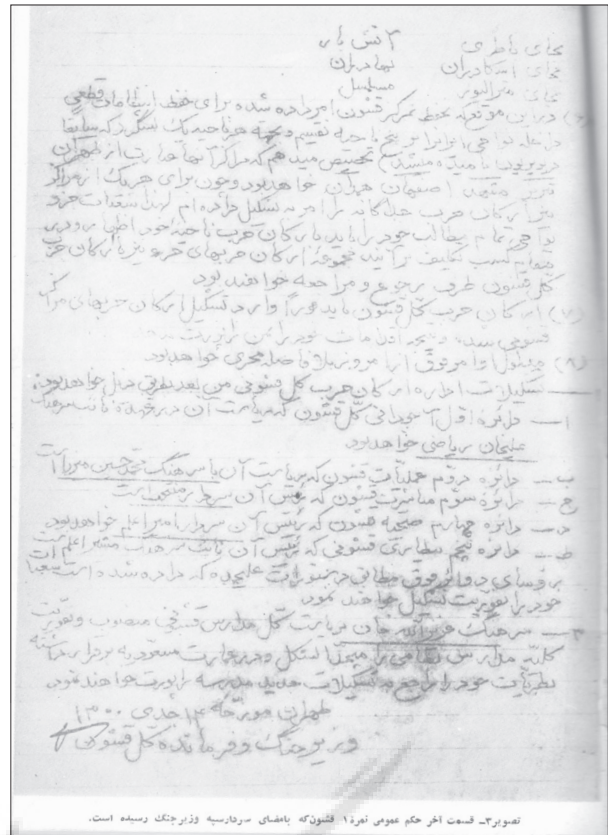 بجای باطری
۳ تش بار
بجای اسکادران بهادران
بجای مترالیوز مسلسل
در این موقع که بحفظ تمرکز قشون امر داده شده برای حفظ انتظامات قطعی
داخله نواحی
تقسیم و بحته هر ناحیه یک لشگر که سابقا
دیویزیون نامیده میشد تخصیص میدهم که مراکز آنها عبارت از طهران
تبریز مشهد اصفهان همدان خواهد بود و چون برای هر یک از مراکز
ارکان حرب جداگانه را امر به تشکیل داده ام لهذا شعبات جزو
نواحی تمام مطالب خود را باید بارکان حرب ناحیه خود اظهار و در
کسب تکلیف نمایند مجموعه ارکان حربهای جزو نیز بارکان حرب
کل قشون طرف رجوع و مراجعه خواهند بود
(۷) ارکان حرب کل قشون باید فوراً وارد تشکیل ارکان حربهای مراکز
قشونی شده و نتیجه اقدامات خود را بمن راپرت دهد
(۸) مدلول مواد فوق از امروز بلافاصله مجری خواهد بود
تشکیلات اداره ارکان حرب کل قشونی من بعد بطریق ذیل خواهد بود:
ا — دائره اول کل قشون که ریاست آن در عهده نایب سرهنگ
علیخان ریاضی خواهد بود
ب — دائره دوم عملیات قشون که ریاست آن با سرهنگ محمد حسین میرزا است
ج — دائره سوم مباشرت قشون که رئیس آن سردار منتخب است
د — دائره چهارم صحیه قشون که رئیس آن سردار امیر اعلم خواهد بود
ط — دائره پنجم بیطاری قشونی که رئیس آن نایب سرهنگ است
رؤسای دوائر فوق مطابق دستورات علیحده که داده شده است شعبات
خود را بفوریت تشکیل خواهند نمود
۳ — سرهنگ عزیزالله خان بریاست کل مدارس قشونی منصوب و بفوریت
کلیه مدارس نظامی را متحداً لشکل و در عمارت مسعودیه برقرار داشته
نظریات خود را راجع به تشکیلات جدید مدرسه راپورت خواهند نمود
طهران مورخه ۱۴ جدی ۱۳۰۰
وزیر جنگ و فرمانده کل قشون
تصویر۳ـ قسمت آخر حکم عمومی نمرهٔ ۱ قشون که بامضای سردارسپه وزیرجنگ رسیده است.